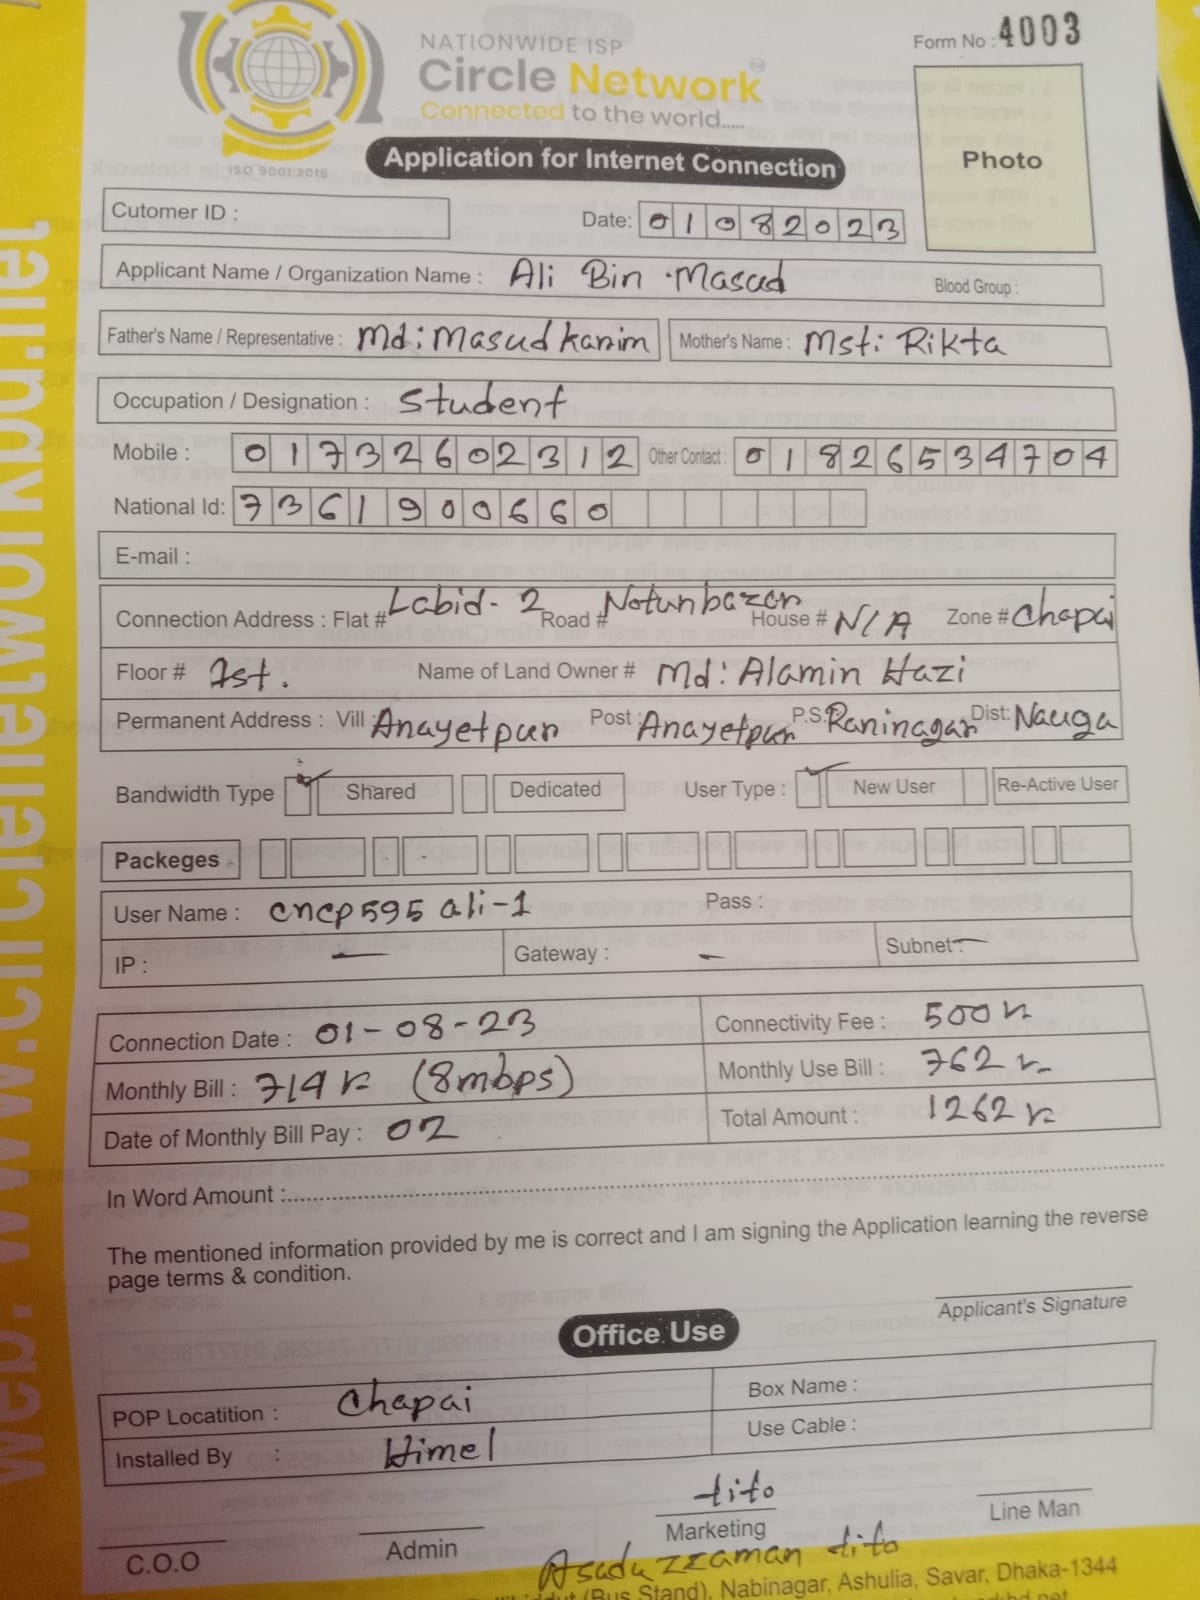 NATIONWIDE ISP
Circle Network
Connected to the world.....
ISO 9001:2015
Form No : 4003
Photo
Application for Internet Connection
Cutomer ID :
Date: 01082023
Applicant Name / Organization Name : Ali Bin Masud
Blood Group :
Father's Name / Representative : Md: Masud Karim
Mother's Name : Mst: Rikta
Occupation / Designation : Student
Mobile : 01732602312 Other Contact : 01826534704
National Id: 7361900660
E-mail :
Connection Address : Flat # Labid-2 Road # Notunbazar House # N/A Zone # Chapai
Floor # 1st. Name of Land Owner # Md: Alamin Hazi
Permanent Address : Vill : Anayetpur Post : Anayetpur P.S: Raninagar Dist: Nauga
Bandwidth Type Shared Dedicated User Type : New User Re-Active User
Packeges
User Name : cncp595 ali-1 Pass :
IP : — Gateway : – Subnet: —
Connection Date : 01-08-23 Connectivity Fee : 500
Monthly Bill : 714 (8mbps) Monthly Use Bill : 762
Date of Monthly Bill Pay : 02 Total Amount : 1262
In Word Amount :
The mentioned information provided by me is correct and I am signing the Application learning the reverse
page terms & condition.
Applicant's Signature
Office Use
POP Locatition : Chapai Box Name :
Installed By : Himel Use Cable :
tito
C.O.O Admin Marketing Line Man
Asaduzzaman tito
(Bus Stand), Nabinagar, Ashulia, Savar, Dhaka-1344
web: www.circlenetworkbd.net